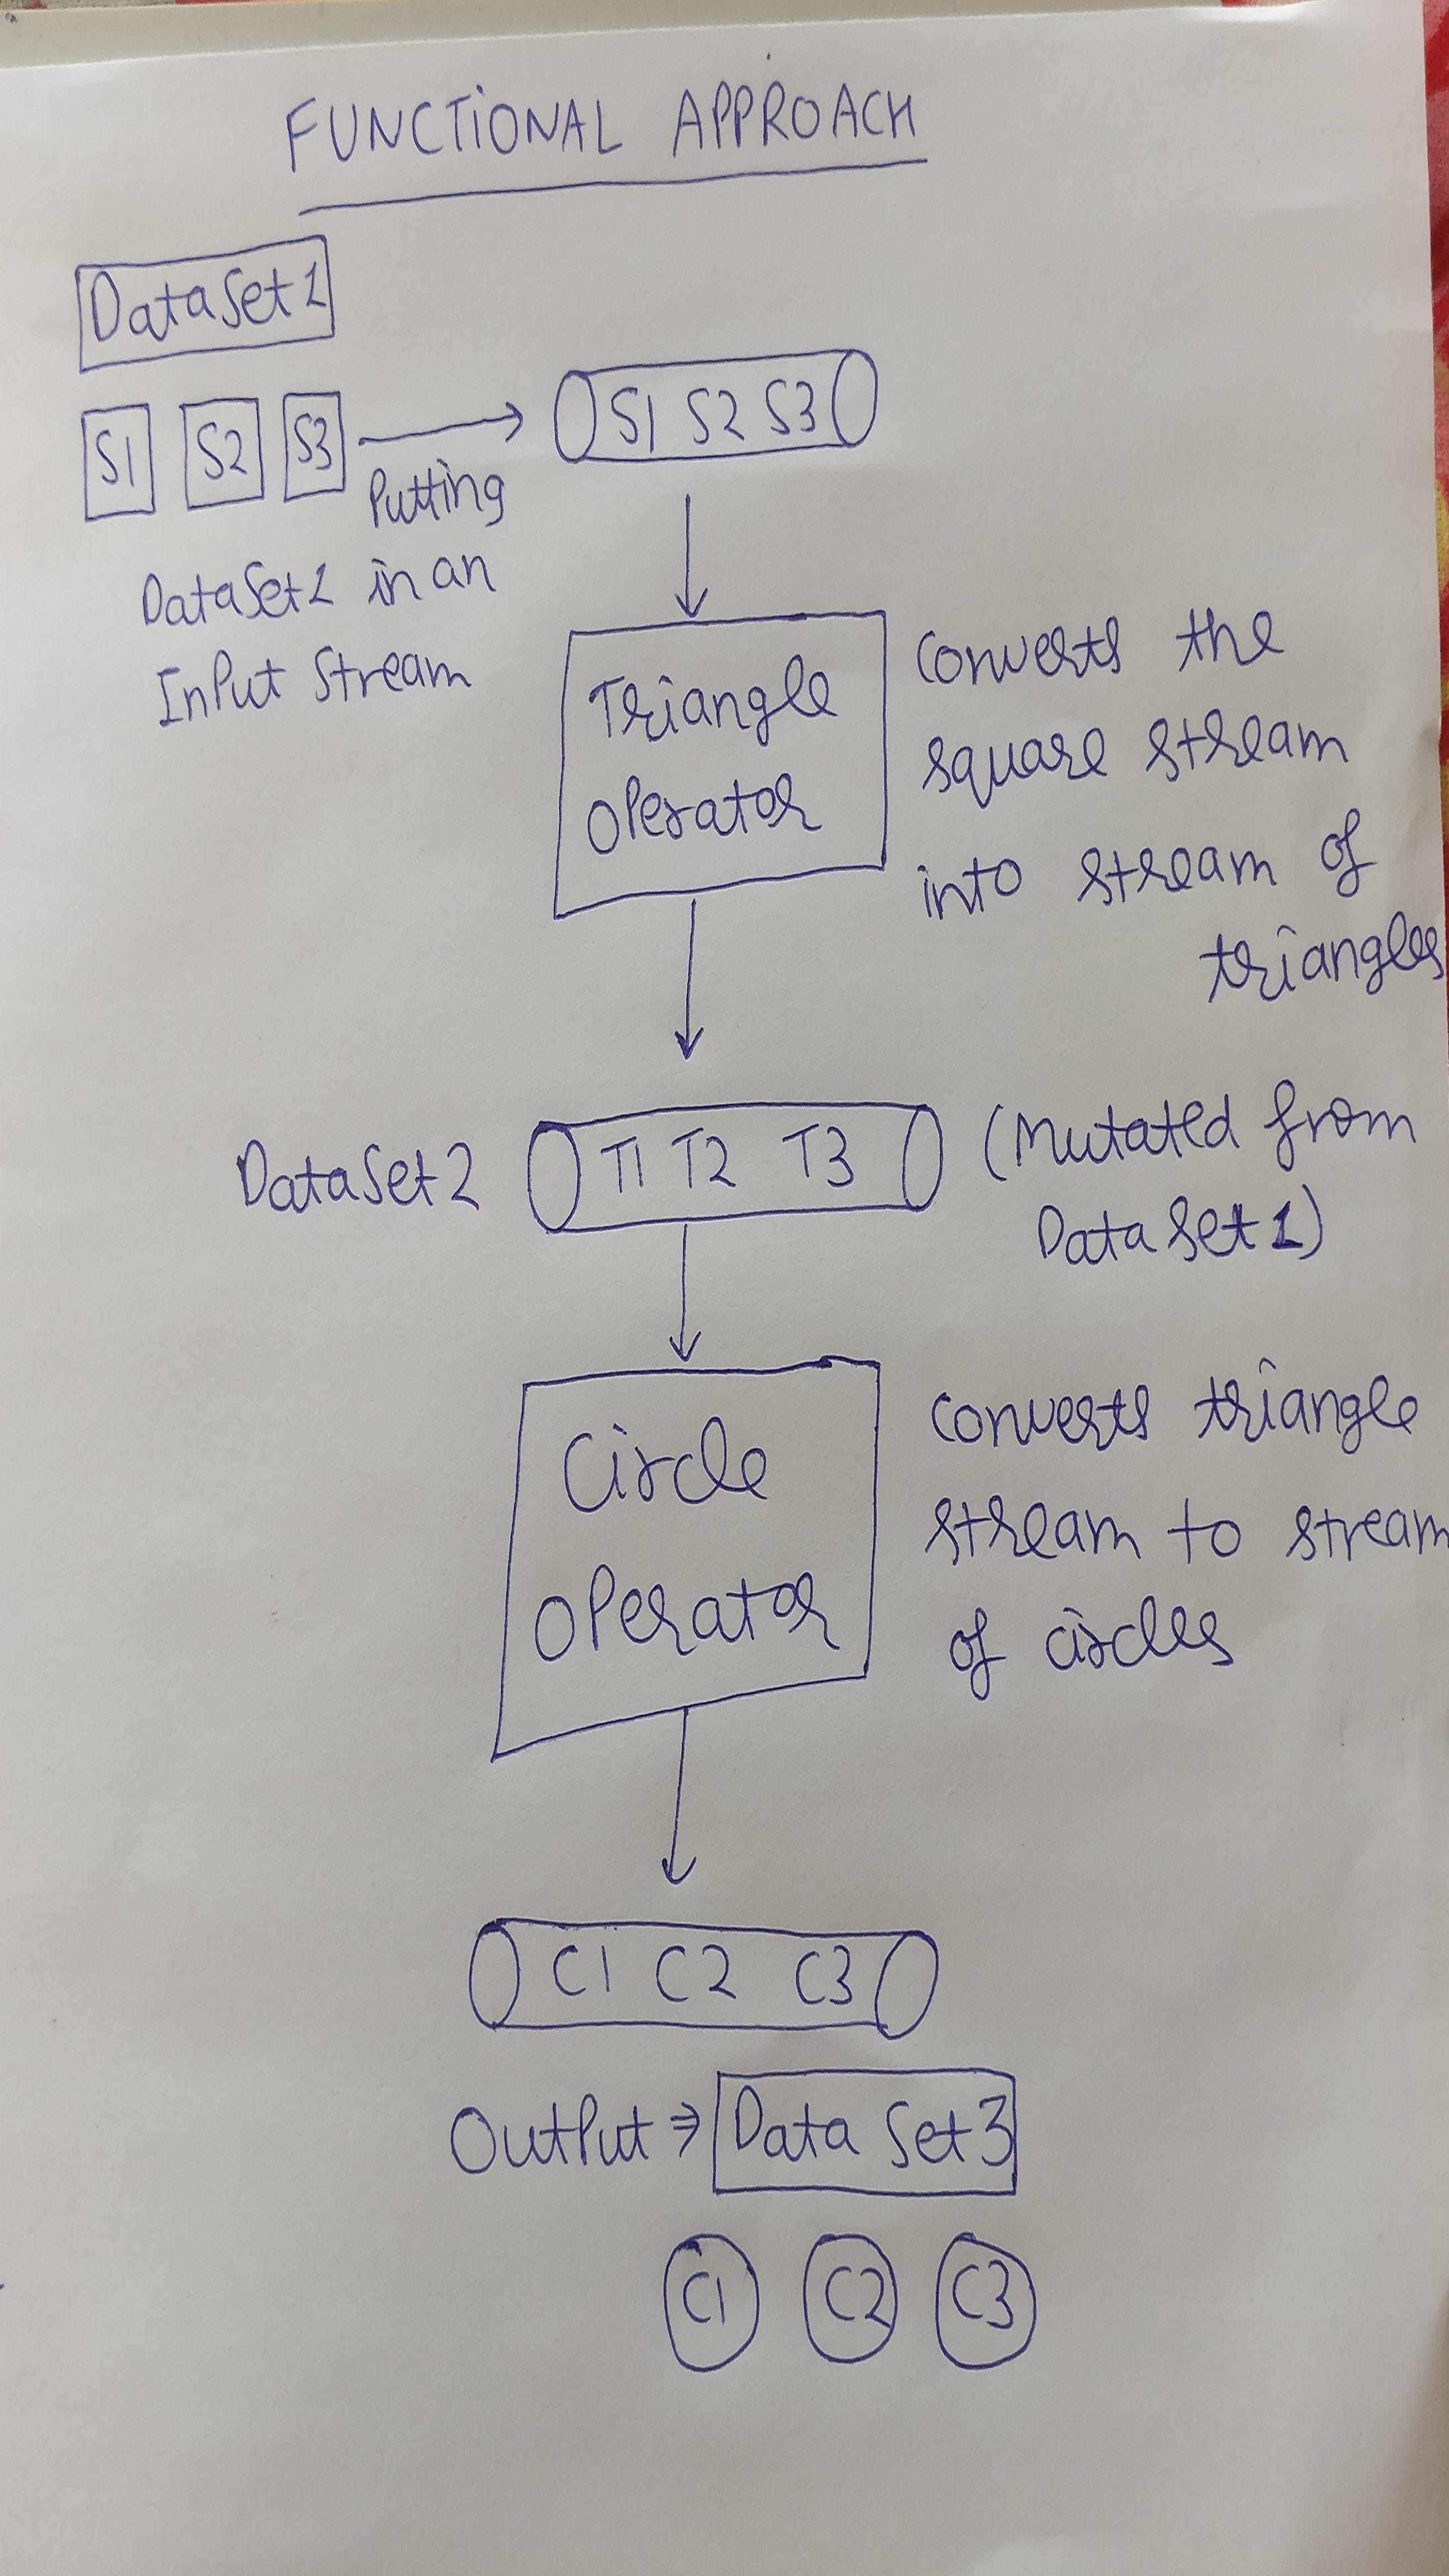 FUNCTIONAL APPROACH
DataSet1
S1 S2 S3
S1 S2 S3
Putting
DataSet1 in an
Input Stream
Triangle
Operator
Converts the
square stream
into stream of
triangles
DataSet2
T1 T2 T3
(Mutated from
DataSet1)
Circle
Operator
Converts triangle
stream to stream
of circles
C1 C2 C3
Output ⇒ Data Set3
C1 C2 C3